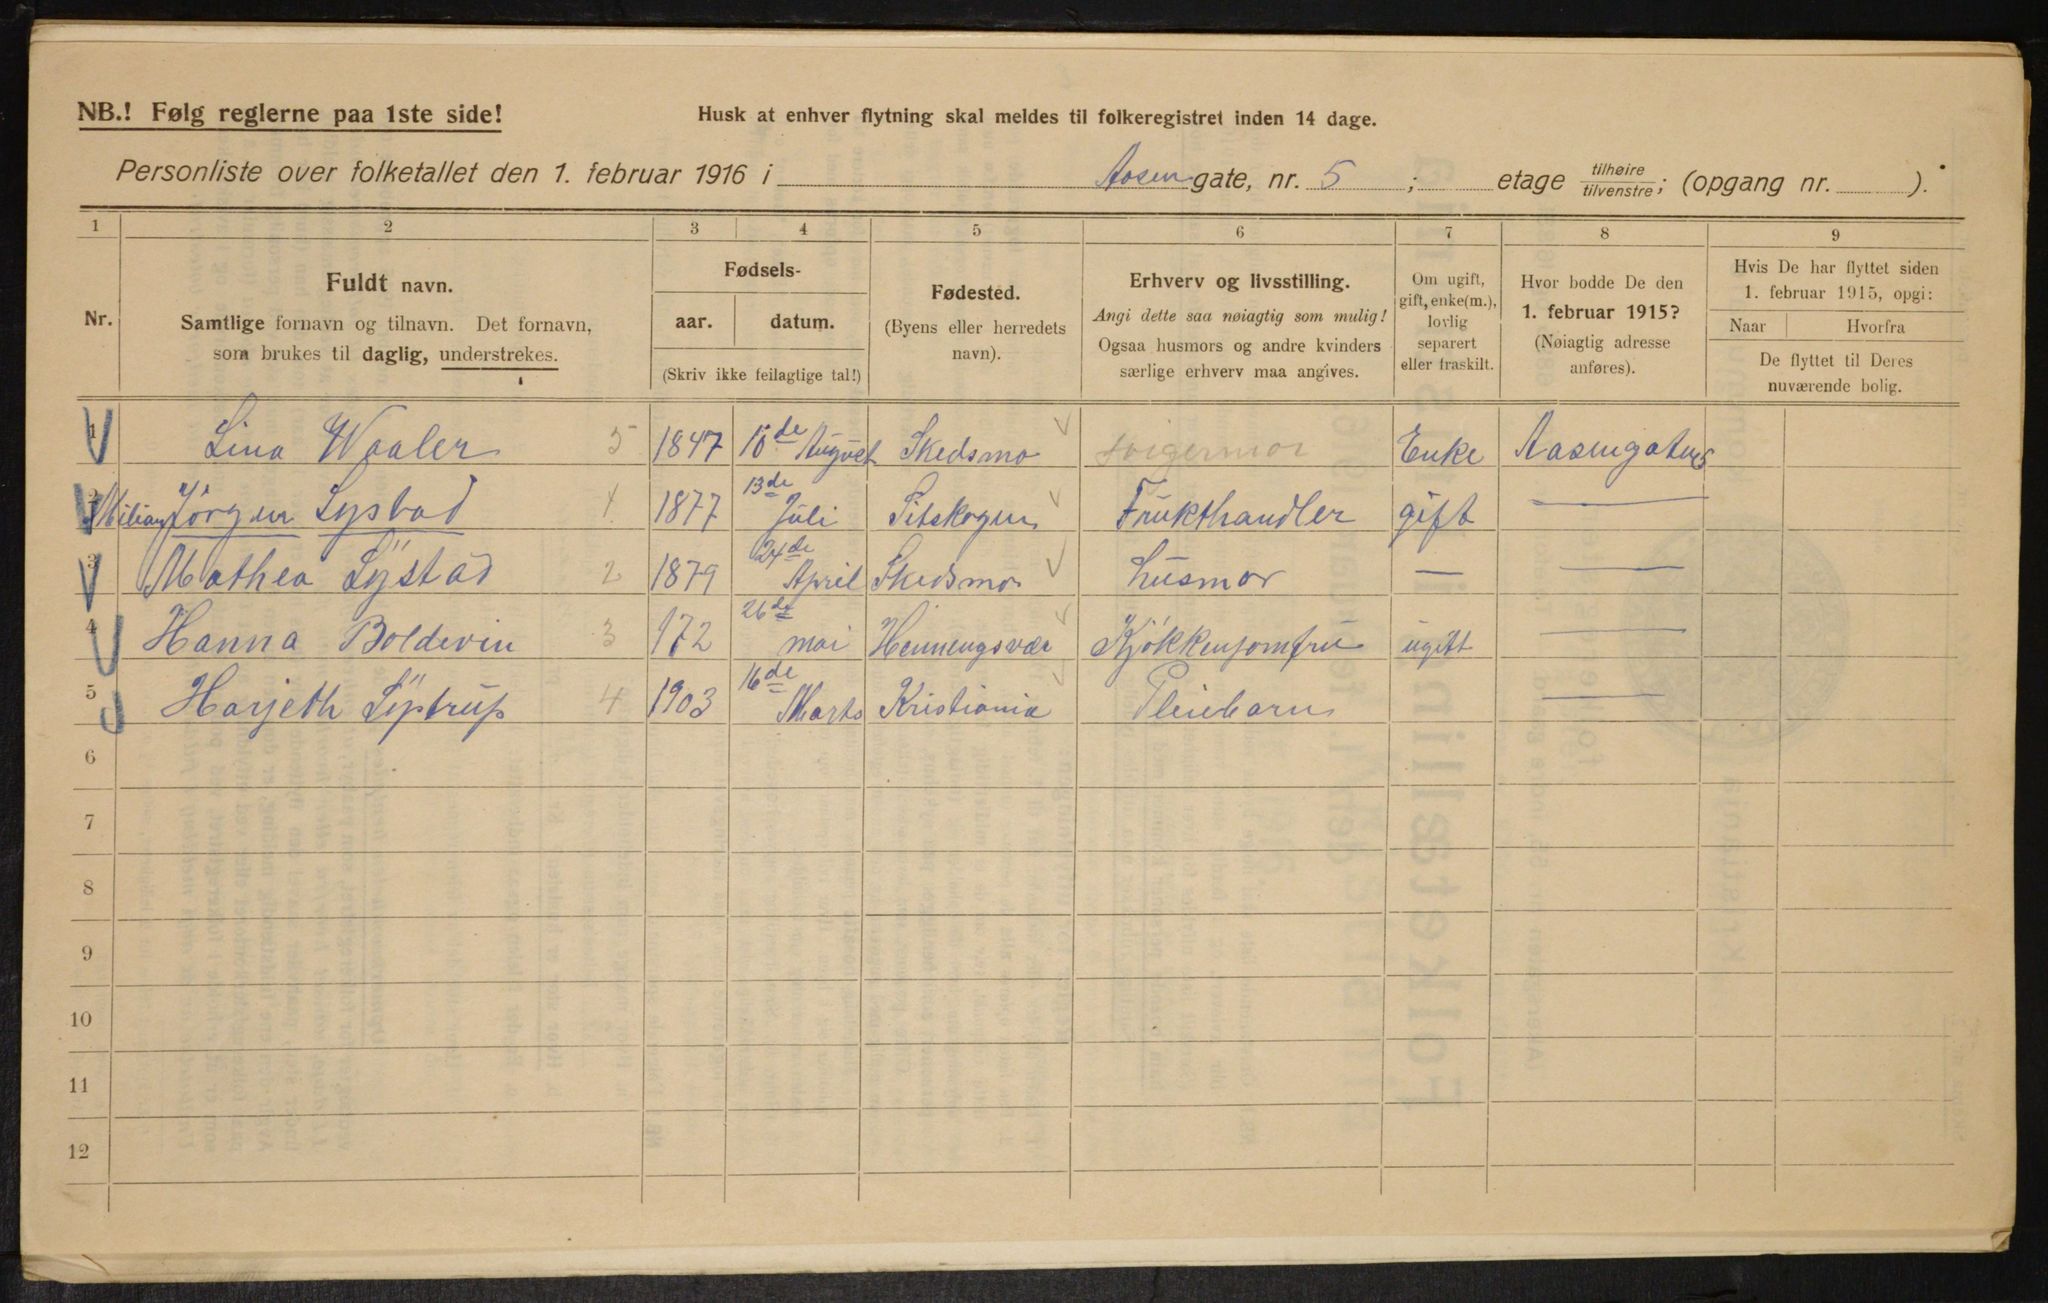 NB.! Følg reglerne paa 1ste side!
Husk at enhver flytning skal meldes til folkeregistret inden 14 dage.
Personliste over folketallet den 1. februar 1916 i Aasen gate, nr. 5 ; etage tilhøire/tilvenstre; (opgang nr. ).
1 2 3 4 5 6 7 8 9
Nr.
Fuldt navn.
Samtlige fornavn og tilnavn. Det fornavn,
som brukes til daglig, understrekes.
Fødsels-
aar. datum.
(Skriv ikke feilagtige tal!)
Fødested.
(Byens eller herredets
navn).
Erhverv og livsstilling.
Angi dette saa nøiagtig som mulig!
Ogsaa husmors og andre kvinders
særlige erhverv maa angives.
Om ugift,
gift, enke(m.),
lovlig
separert
eller fraskilt.
Hvor bodde De den
1. februar 1915?
(Nøiagtig adresse
anføres).
Hvis De har flyttet siden
1. februar 1915, opgi:
Naar Hvorfra
De flyttet til Deres
nuværende bolig.
1 Lina Waaler 5 1847 10de August Skedsmo svigermor Enke Aasengaten 5
2 Jörgen Lystad 1 1877 13de Juli Frukthandler gift —
3 Mathea Lystad 2 1879 24de April Skedsmo husmor — —
4 Hanna Boldevin 3 172 26de mai Henningsvær Kjökkenjomfru ugift —
5 Harjeth Lystrup 4 1903 16de Marts Kristiania Pleiebarn —
6
7
8
9
10
11
12